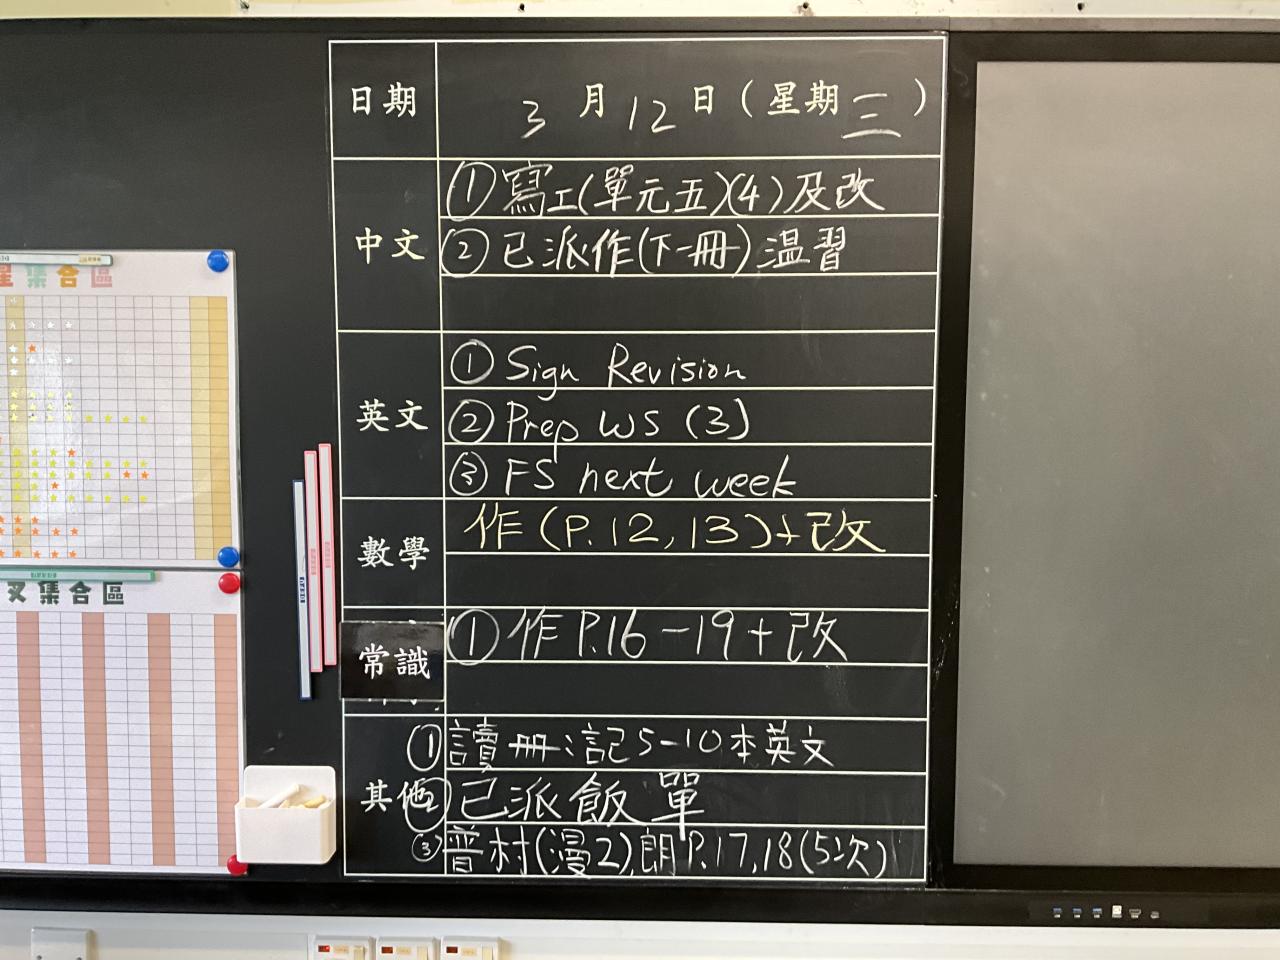 日期 3月12日(星期三)
中文
①寫工(單元五)(4)及改
②已派作(下一冊)温習
英文
① Sign Revision
② Prep WS (3)
③ FS next week
數學
作(P.12,13)+改
常識
①作P.16-19+改
其他
①讀冊:記5-10本英文
②已派飯單
③普村(漫2),朗P.17,18(5次)
星集合區
叉集合區